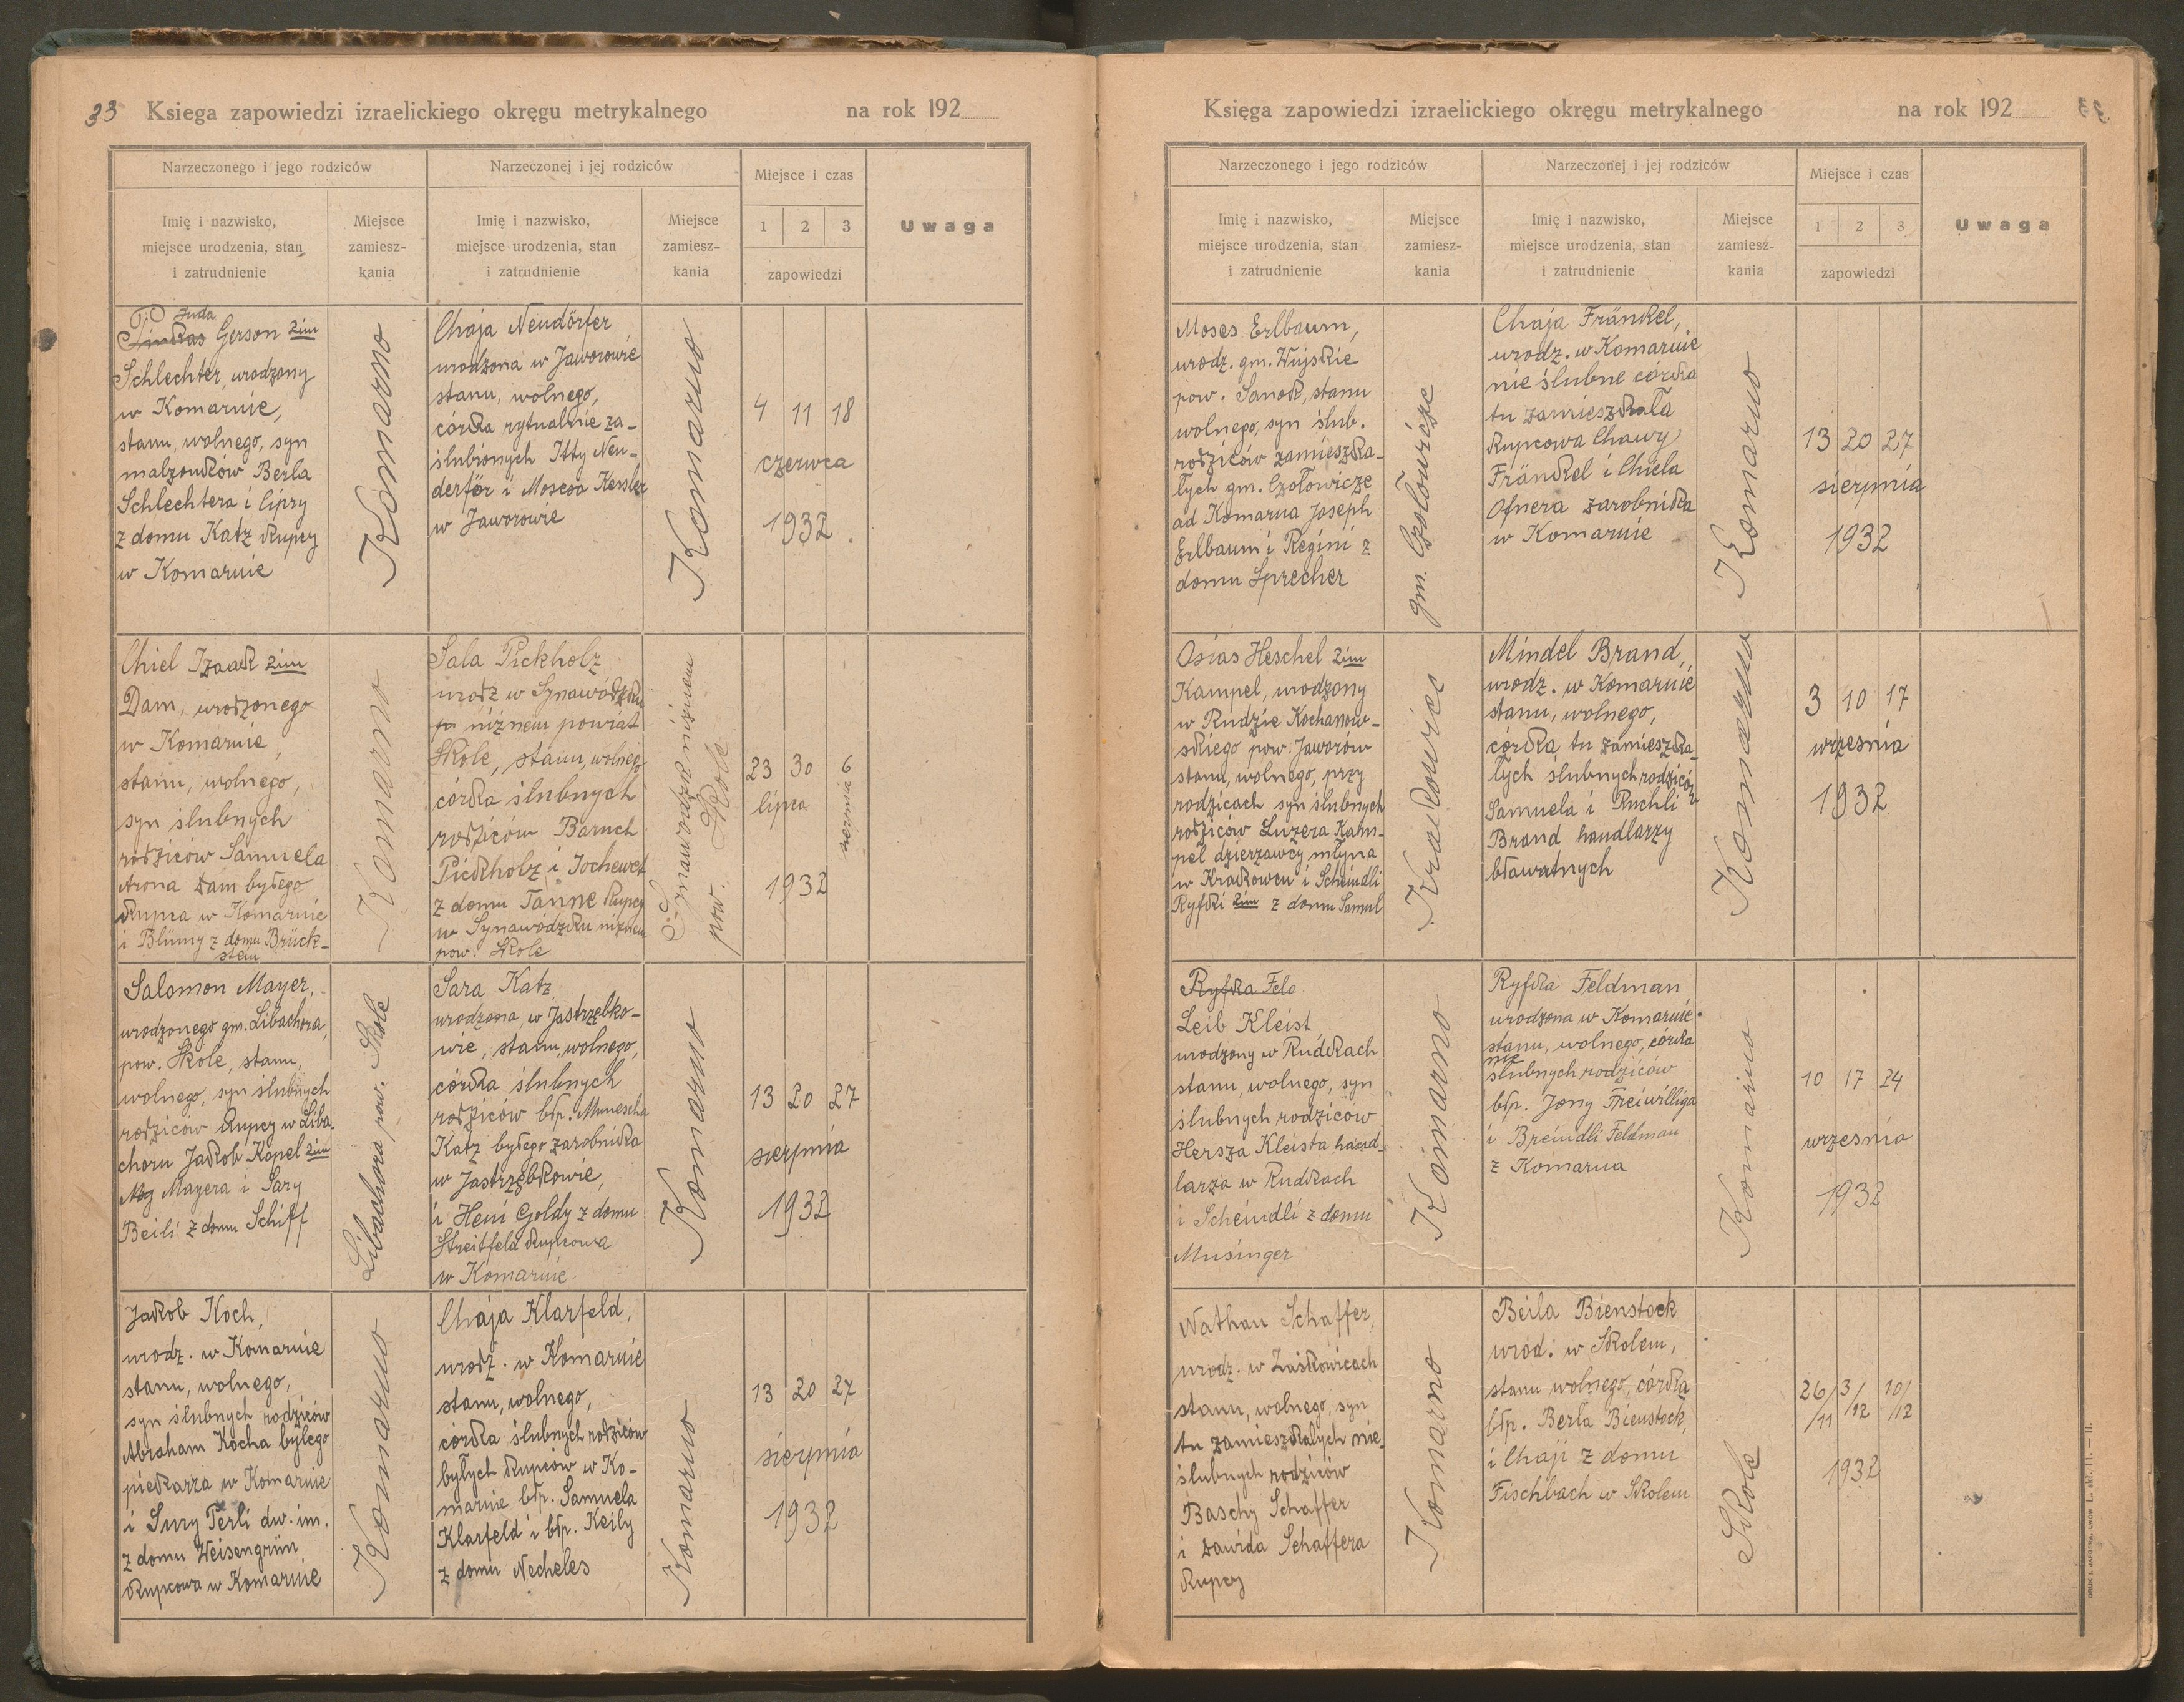 33 Księga zapowiedzi izraelickiego okręgu metrykalnego na rok 192
Narzeczonego i jego rodziców
Narzeczonej i jej rodziców
Miejsce i czas
Imię i nazwisko,
miejsce urodzenia, stan
i zatrudnienie
Miejsce
zamiesz-
kania
Imię i nazwisko,
miejsce urodzenia, stan
i zatrudnienie
Miejsce
zamiesz-
kania
1 2 3
zapowiedzi
Uwaga
Juda
Pinkas Gerson 2im
Schlechter, urodzony
w Komarnie,
stanu, wolnego, syn
malzonków Berla
Schlechtera i Cipry
z domu Katz kupcy
w Komarnie
Komarno
Chaja Neudörfer
urodzona w Jaworowie
stanu, wolnego,
córka rytualnie za-
ślubionych Itty Neu-
derför i Mosesa Kessler
w Jaworowie
Komarno
4 11 18
czerwca
1932.
Chiel Izaak 2im
Dam, urodzonego
w Komarnie,
stanu, wolnego,
syn ślubnych
rodziców Samuela
Arona Dam byłego
kupca w Komarnie
i Blümy z domu Brück-
stein
Komarno
Sala Pickholz
urodz w Synawódzku
niżnem powiat
Skole, stanu, wolnego
córka ślubnych
rodziców Baruch
Pickholz i Jochewet
z domu Tanne kupcy
w Synawódzku niżnem
pow. Skole
Synawódzk niżnem
pow. Skole
23 30 6
lipca sierpnia
1932
Salomon Mayer,
urodzonego gm. Libachora,
pow. Skole, stanu,
wolnego, syn ślubnych
rodziców kupcy w Liba-
choru Jakob Kopel 2im
Mayera i Sary
Beili z domu Schiff
Libachora pow. Skole
Sara Katz
urodzona, w Jastrzębko-
wie, stanu, wolnego,
córka ślubnych
rodziców błp. Munescha
Katz byłego zarobnika
w Jastrzębkowie,
i Heni Goldy z domu
Streitfeld kupcowa
w Komarnie
Komarno
13 20 27
sierpnia
1932
Jakob Koch,
urodz. w Komarnie
stanu, wolnego,
syn ślubnych rodziców
Abraham Kocha byłego
piekarza w Komarnie
i Sury Perli dw. im.
z domu Weisengrün
kupcowa w Komarnie
Komarno
Chaja Klarfeld,
urodz. w Komarnie
stanu, wolnego,
córka ślubnych rodziców
byłych kupców w Ko-
marnie błp. Samuela
Klarfeld i błp. Keily
z domu Necheles
Komarno
13 20 27
sierpnia
1932
Księga zapowiedzi izraelickiego okręgu metrykalnego na rok 192
Narzeczonego i jego rodziców
Narzeczonej i jej rodziców
Miejsce i czas
Imię i nazwisko,
miejsce urodzenia, stan
i zatrudnienie
Miejsce
zamiesz-
kania
Imię i nazwisko,
miejsce urodzenia, stan
i zatrudnienie
Miejsce
zamiesz-
kania
1 2 3
zapowiedzi
Uwaga
Moses Erlbaum,
urodz. gm. Wujskie
pow. Sanok, stanu
wolnego, syn ślub.
rodziców zamieszka-
łych gm. Czołowicze
ad Komarna Joseph
Erlbaum i Regini z
domu Sprecher
gm. Czołowicze
Chaja Fränkel,
urodz. w Komarnie
nie ślubne córka
tu zamieszkała
kupcowa Chawy
Fränkel i Chiela
Ofnera zarobnika
w Komarnie
Komarno
13 20 27
sierpnia
1932
Osias Heschel 2im
Kampel, urodzony
w Rudzie Kochanow-
skiego pow. Jaworów
stanu, wolnego, przy
rodzicach syn ślubnych
rodziców Luzera Kam-
pel dzierzawcy młyna
w Krakowcu i Scheindli
Ryfki 2im z domu Samul
Krakowiec
Mindel Brand,
urodz. w Komarnie
stanu, wolnego,
córka tu zamieszka-
łych ślubnych rodziców
Samuela i Ruchli
Brand handlarzy
bławatnych
Komarno
3 10 17
wrzesnia
1932
Ryfka Feld
Leib Kleist
urodzony w Rudkach
stanu, wolnego, syn
ślubnych rodziców
Hersza Kleista hand-
larza w Rudkach
i Scheindli z domu
Musinger
Komarno
Ryfka Feldman
urodzona w Komarnie
stanu, wolnego, córka
nie
ślubnych rodziców
błp. Jony Freiwilliga
i Breindli Feldman
z Komarna
Komarno
10 17 24
wrzesnia
1932
Nathan Schaffer,
urodz. w Zaśkowicach
stanu, wolnego, syn
tu zamieszkałych nie-
ślubnych rodziców
Baschy Schaffer
i Dawida Schaffera
kupcy
Komarno
Beila Bienstock
urod. w Skolem,
stanu wolnego, córka
błp. Berla Bienstock,
i Chaji z domu
Fischbach w Skolem
Skole
26/11 3/12 10/12
1932